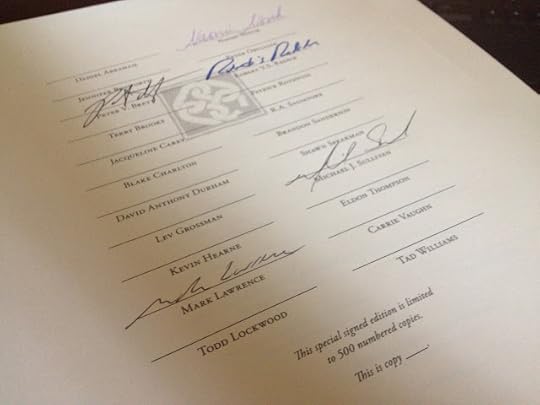 Daniel Abraham
Jennifer Bosworth
Peter V. Brett
Terry Brooks
Jacqueline Carey
Blake Charlton
David Anthony Durham
Lev Grossman
Kevin Hearne
Mark Lawrence
Mark Lawrence
Todd Lockwood
Naomi Novik
Naomi Novik
Peter Orullian
Robert V.S. Redick
Patrick Rothfuss
R.A. Salvatore
Brandon Sanderson
Shawn Speakman
Michael J. Sullivan
Eldon Thompson
Carrie Vaughn
Tad Williams
This special signed edition is limited
to 500 numbered copies.
This is copy ____.